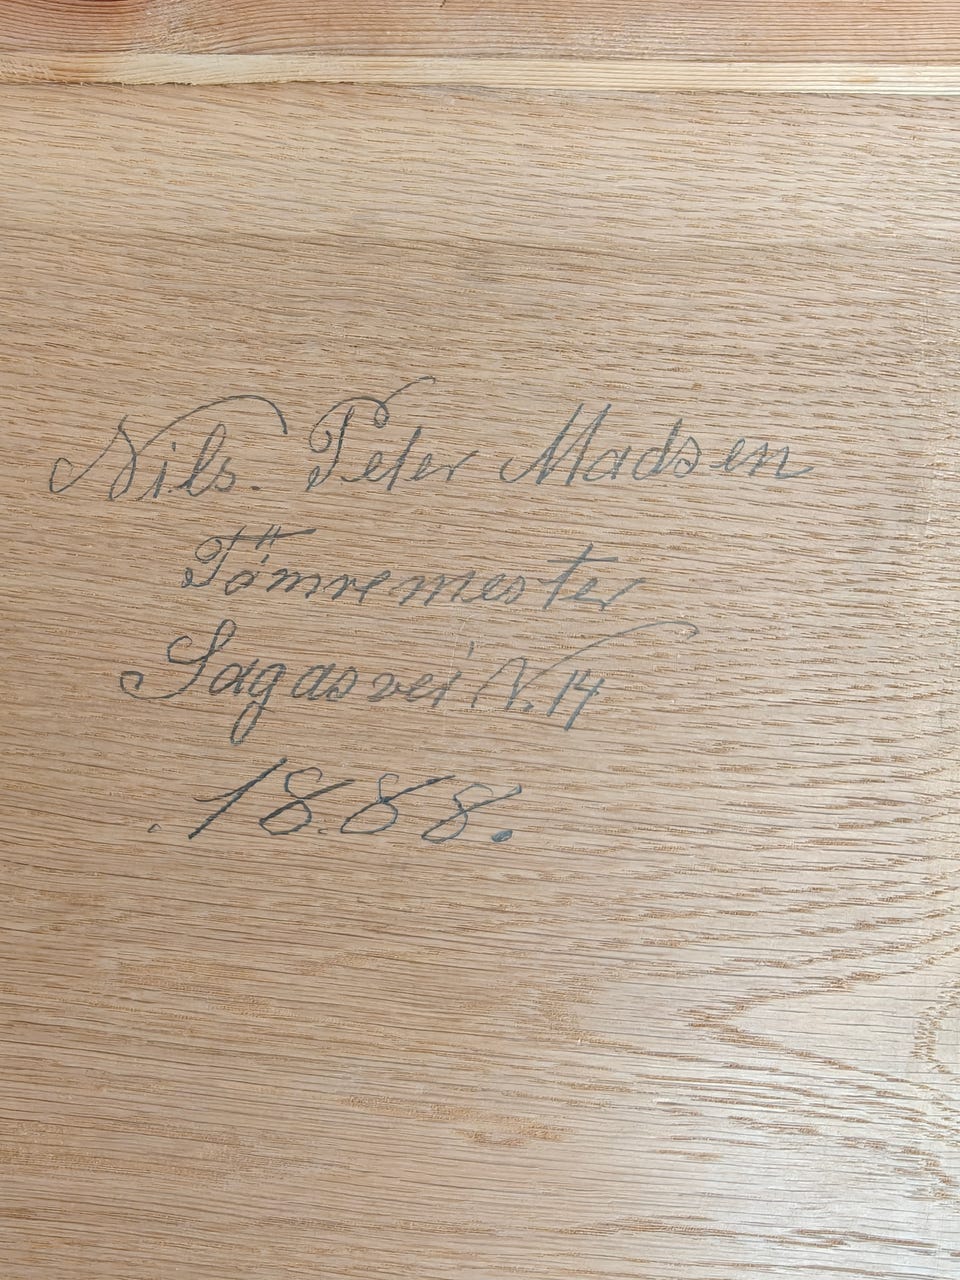 Nils. Peter Madsen
Tömremester
Sagasvei N. 14
.18.88.